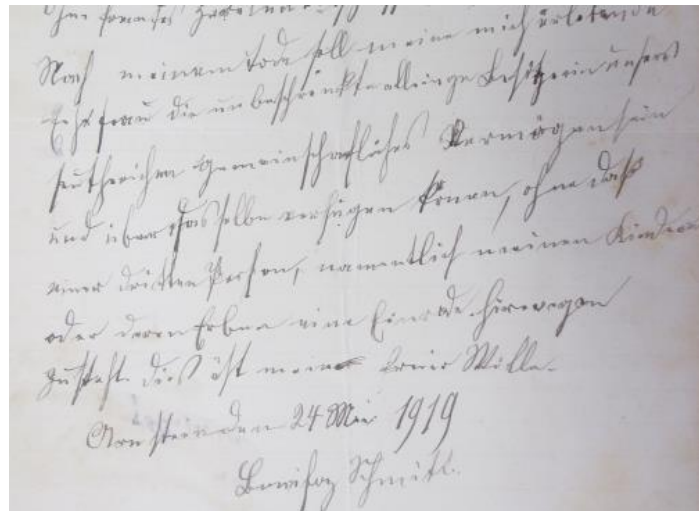 Nach meinem Tode soll meine mich überlebende
Ehefrau die unbeschränkte alleinige Besitzerin unsers
gemeinschaftliches Vermögen sein
und über dasselbe verfügen könen, ohne daß
einer dritten Person, namentlich meinen Kindern
oder deren Erben eine Einrede hirwegen
zusteht. Dies ist mein Wille.
Arnstein den 24 Mai 1919
Bonifaz Schmitt.